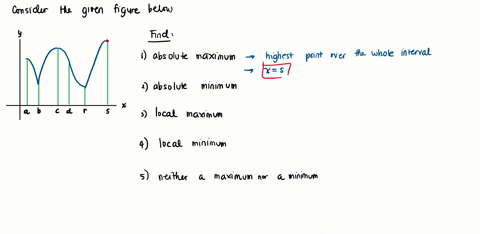 Consider the given figure below
y
a b c d r s x
Find:
1) absolute maximum → highest point over the whole interval
→ x = s
2) absolute minimum
3) local maximum
4) local minimum
5) neither a maximum nor a minimum